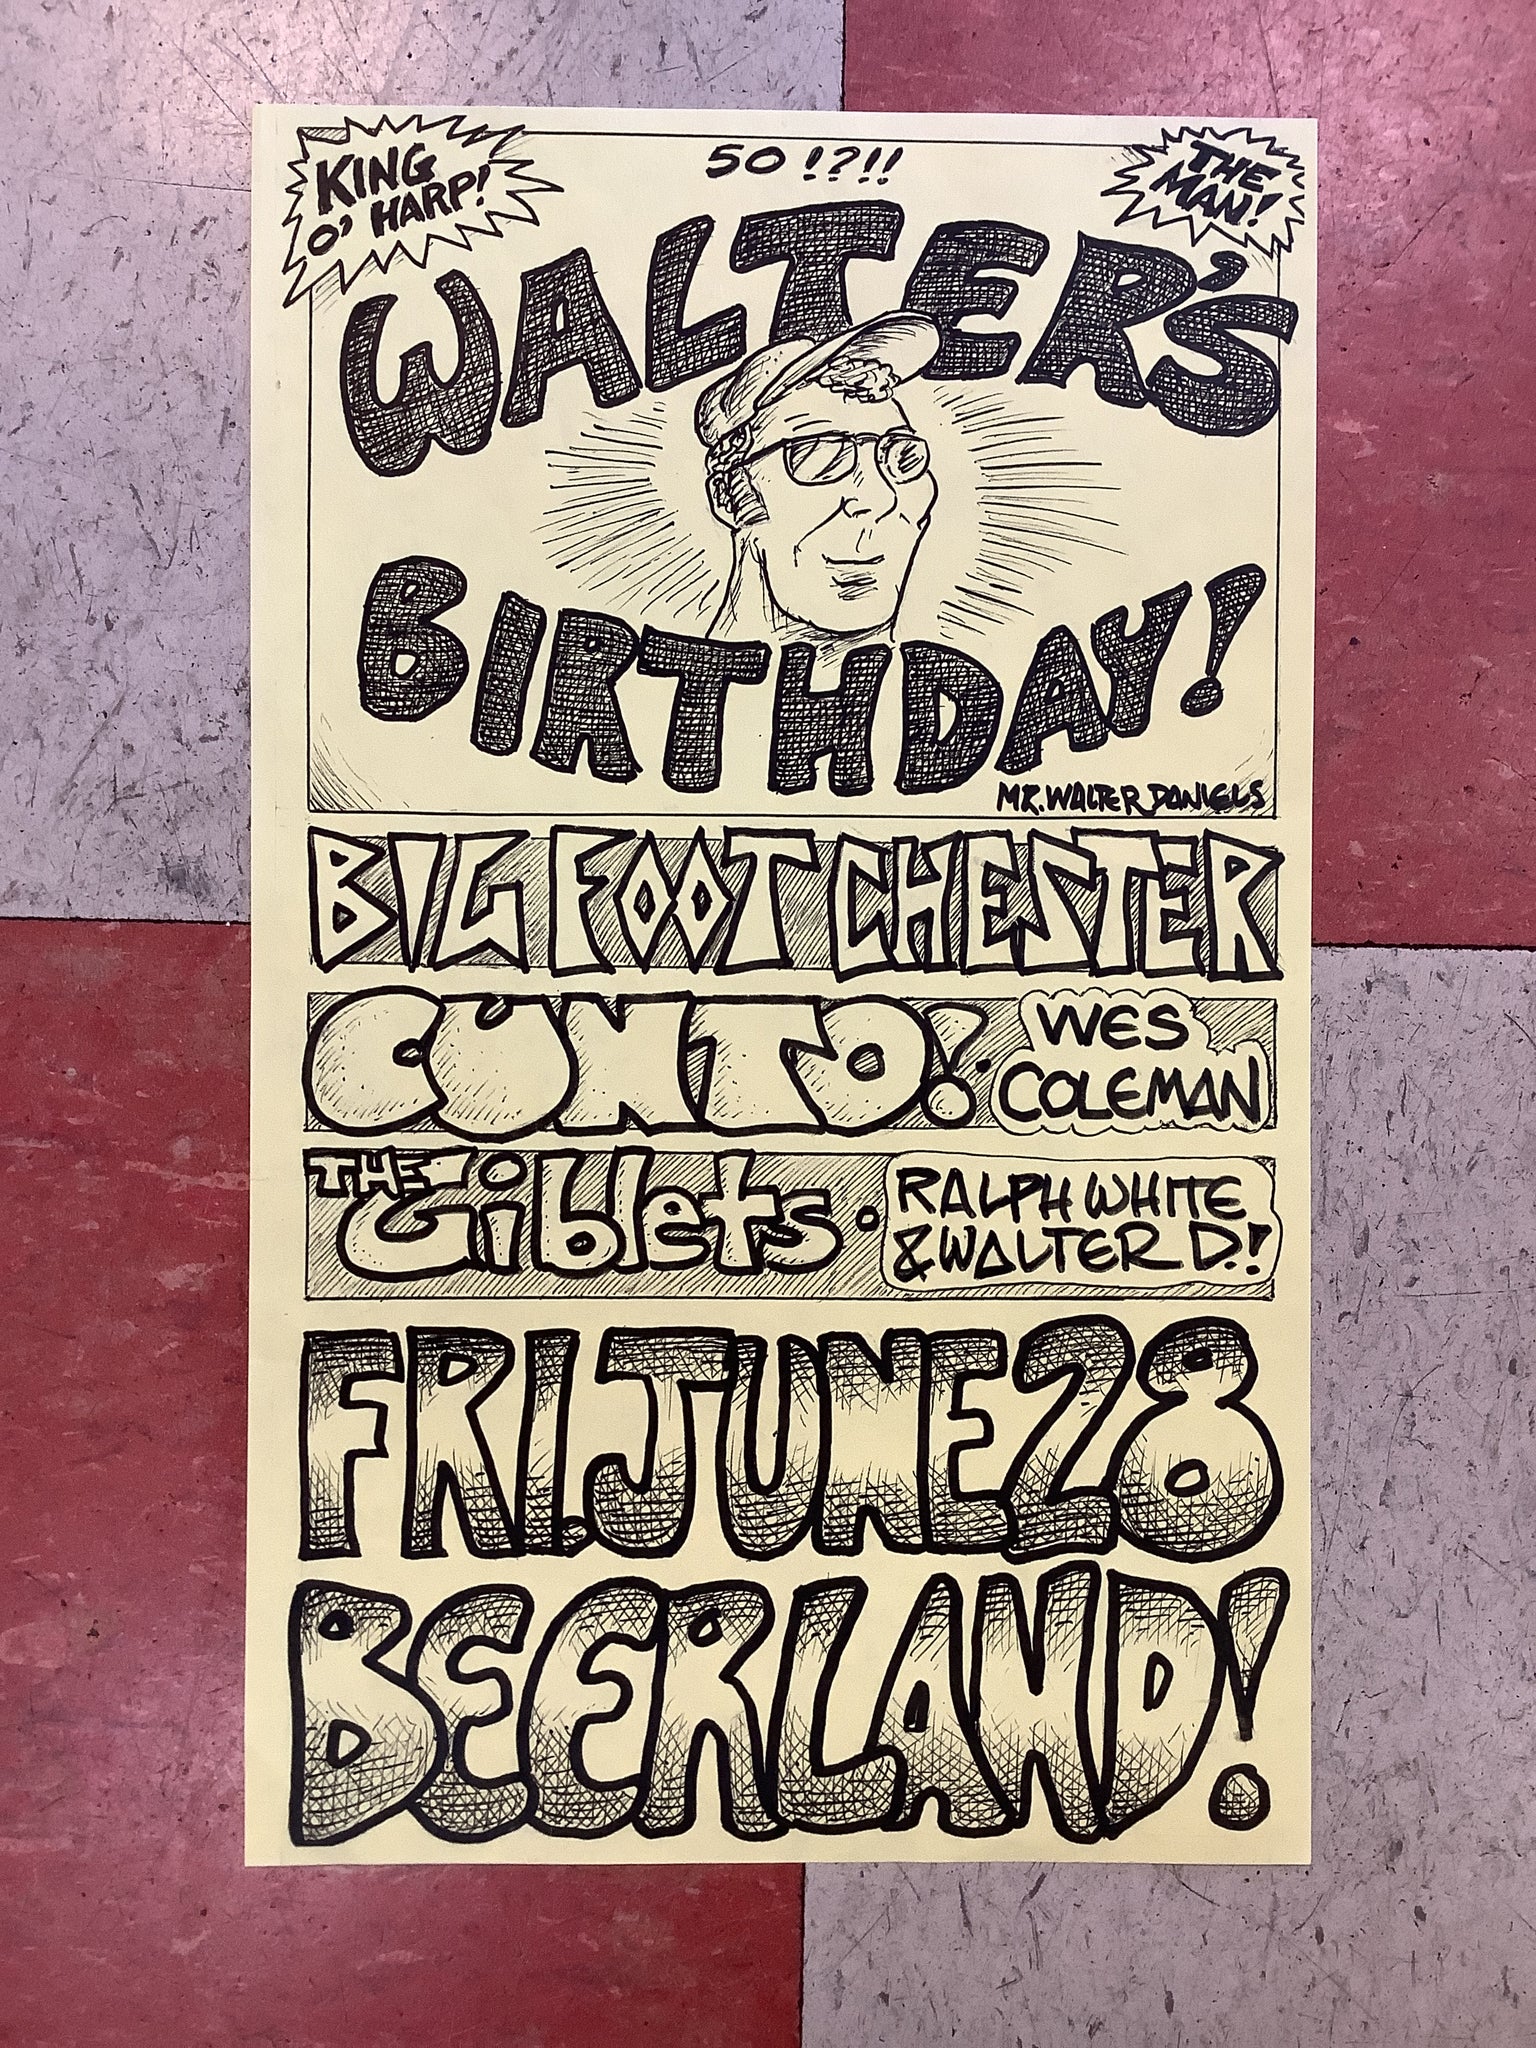 KING
O' HARP!
50!?!!
THE
MAN!
WALTER'S
BIRTHDAY!
MR. WALTER DANIELS
BIGFOOT CHESTER
CUNTO!
WES
COLEMAN
THE Giblets •
RALPH WHITE
& WALTER D.!
FRI. JUNE 28
BEERLAND!